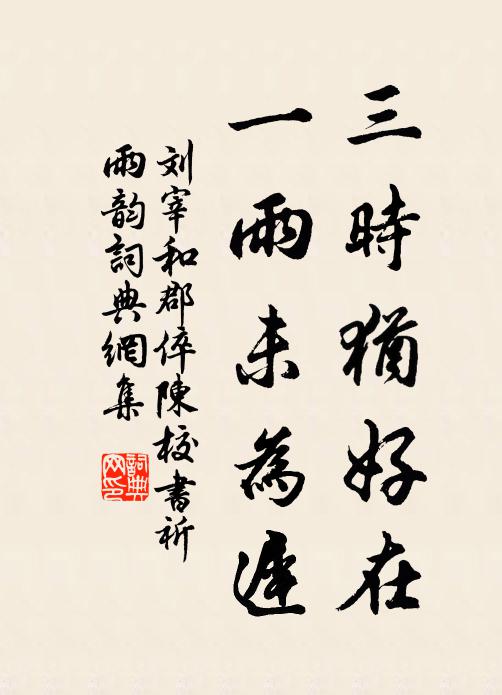 三時猶好在
一雨未為遲
刘宰和郡倅陳校書祈
雨韵詞典網集
詞典網印